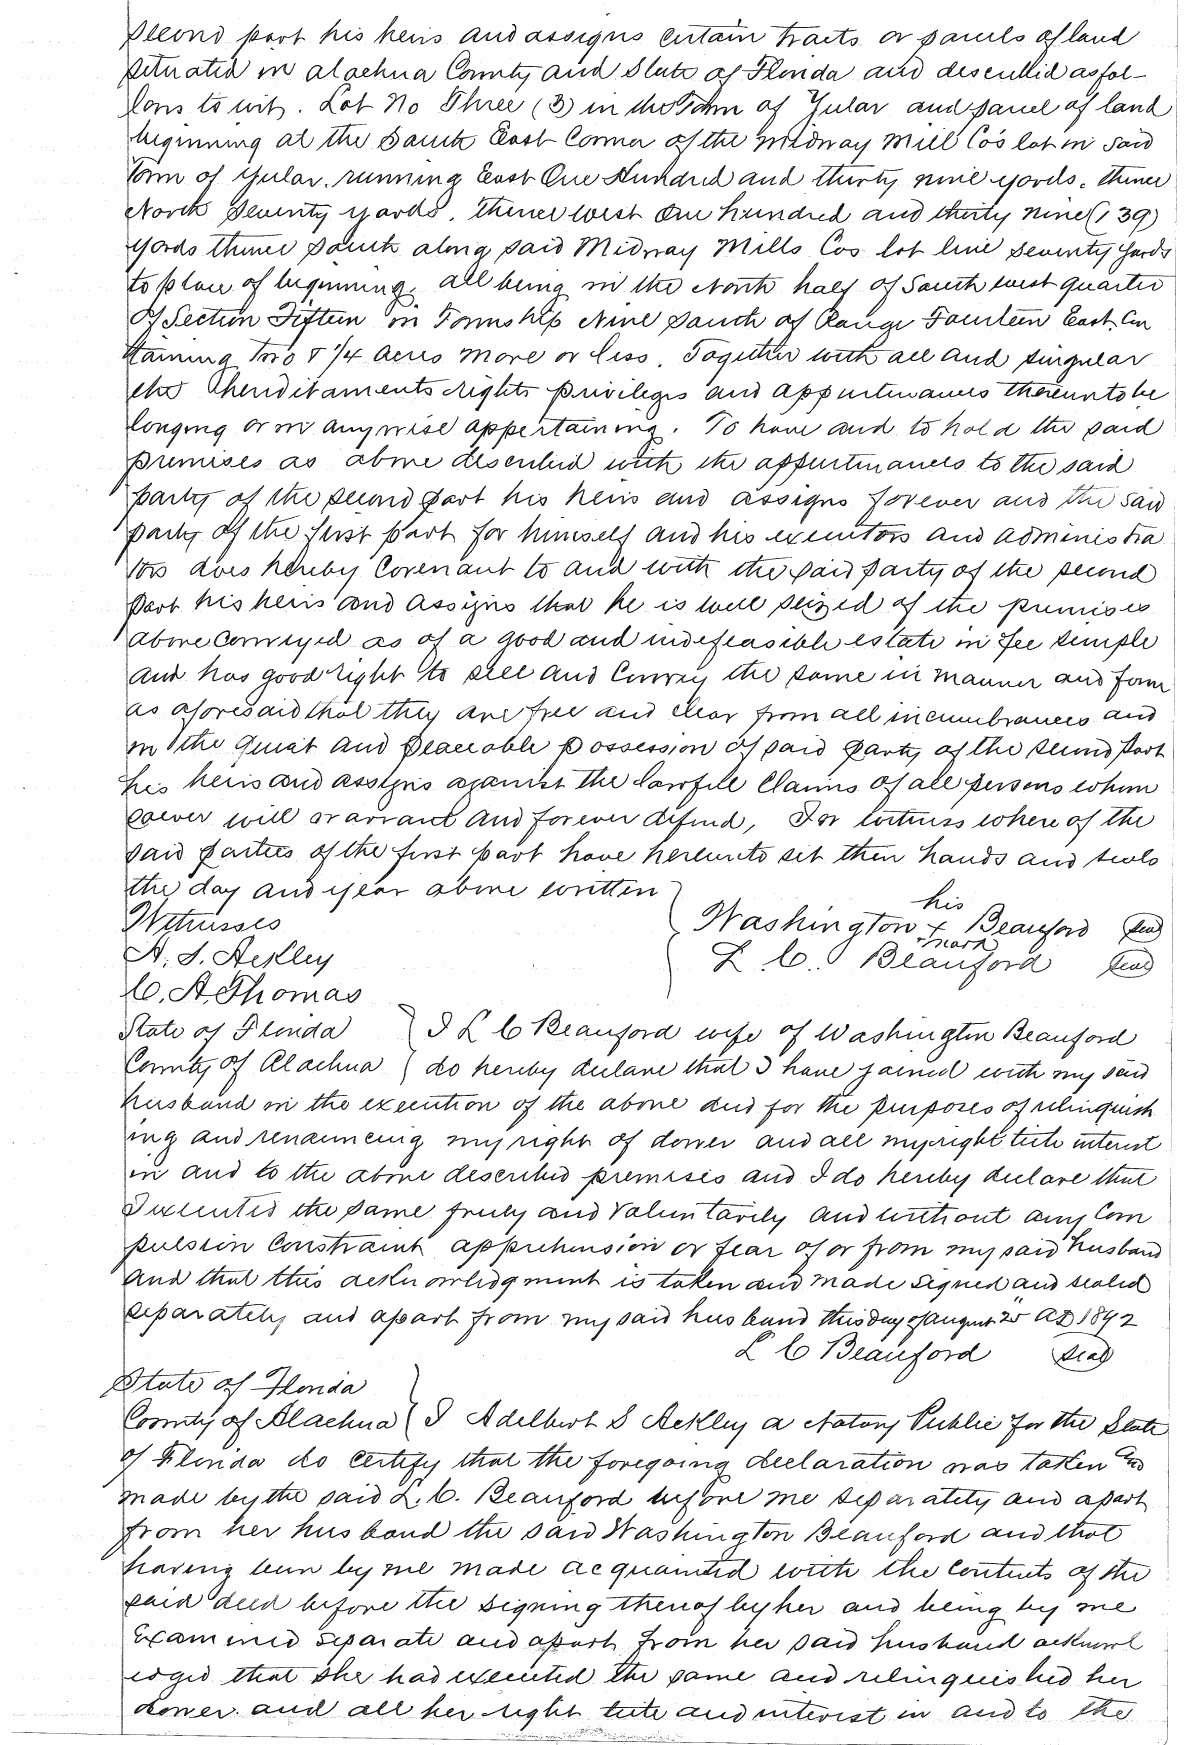 second part his heirs and assigns certain tracts or parcels of land
situated in Alachua County and State of Florida and described as fol-
lows to wit. Lot No Three (3) in the Town of Yular and parcel of land
beginning at the South East Corner of the Midway Mill Co's lot in said
Town of Yular. running East One Hundred and thirty nine yards. thence
North Seventy yards. thence west One hundred and thirty nine (139)
yards thence South along said Midway Mills Cos lot line seventy yards
to place of beginning. all being in the North half of South west quarter
Of Section Fifteen in Township Nine South of Range Fourteen East. Con
taining two & 1/4 acres more or less. Together with all and singular
the hereditaments rights privileges and appurtenances thereunto be
longing or in anywise appertaining. To have and to hold the said
premises as above described with the appurtenances to the said
party of the second part his heirs and assigns forever and the said
party of the first part for himself and his executors and administra
tors does hereby Covenant to and with the said party of the second
part his heirs and assigns that he is well seized of the premises
above conveyed as of a good and indefeasible estate in fee simple
and has good right to sell and Convey the same in manner and form
as aforesaid that they are free and clear from all incumbrances and
in the quiat and peaceable possession of said party of the second part
his heirs and assigns against the lawfull Claims of all persons whom
soever will warrant and forever defend, In witness where of the
said parties of the first part have hereunto set their hands and seals
the day and year above written
his
Witnesses Washington x Beauford seal
mark
A. S. Ackley L. C. Beauford seal
C. A. Thomas
State of Florida } I L C Beauford wife of Washington Beauford
County of Alachua } do hereby declare that I have joined with my said
husband in the execution of the above deed for the purposes of relinquish
ing and renouncing my right of dower and all my right title interest
in and to the above described premises and I do hereby declare that
I executed the same freely and Voluntarily and without any Com
pulsion Constraint apprehension or fear of or from my said husband
and that this acknowledgment is taken and made signed and sealed
separately and apart from my said husband this day of August 25" AD 1892
L C Beauford seal
State of Florida }
County of Alachua { I Adelbert S Ackley a Notary Public for the State
of Florida do certify that the foregoing declaration was taken and
made by the said L. C. Beauford before me separately and apart
from her husband the said Washington Beauford and that
having been by me made acquainted with the contents of the
said deed before the signing thereof by her and being by me
Examined separate and apart from her said husband acknowl
edged that she had executed the same and relinquished her
dower and all her right title and interest in and to the